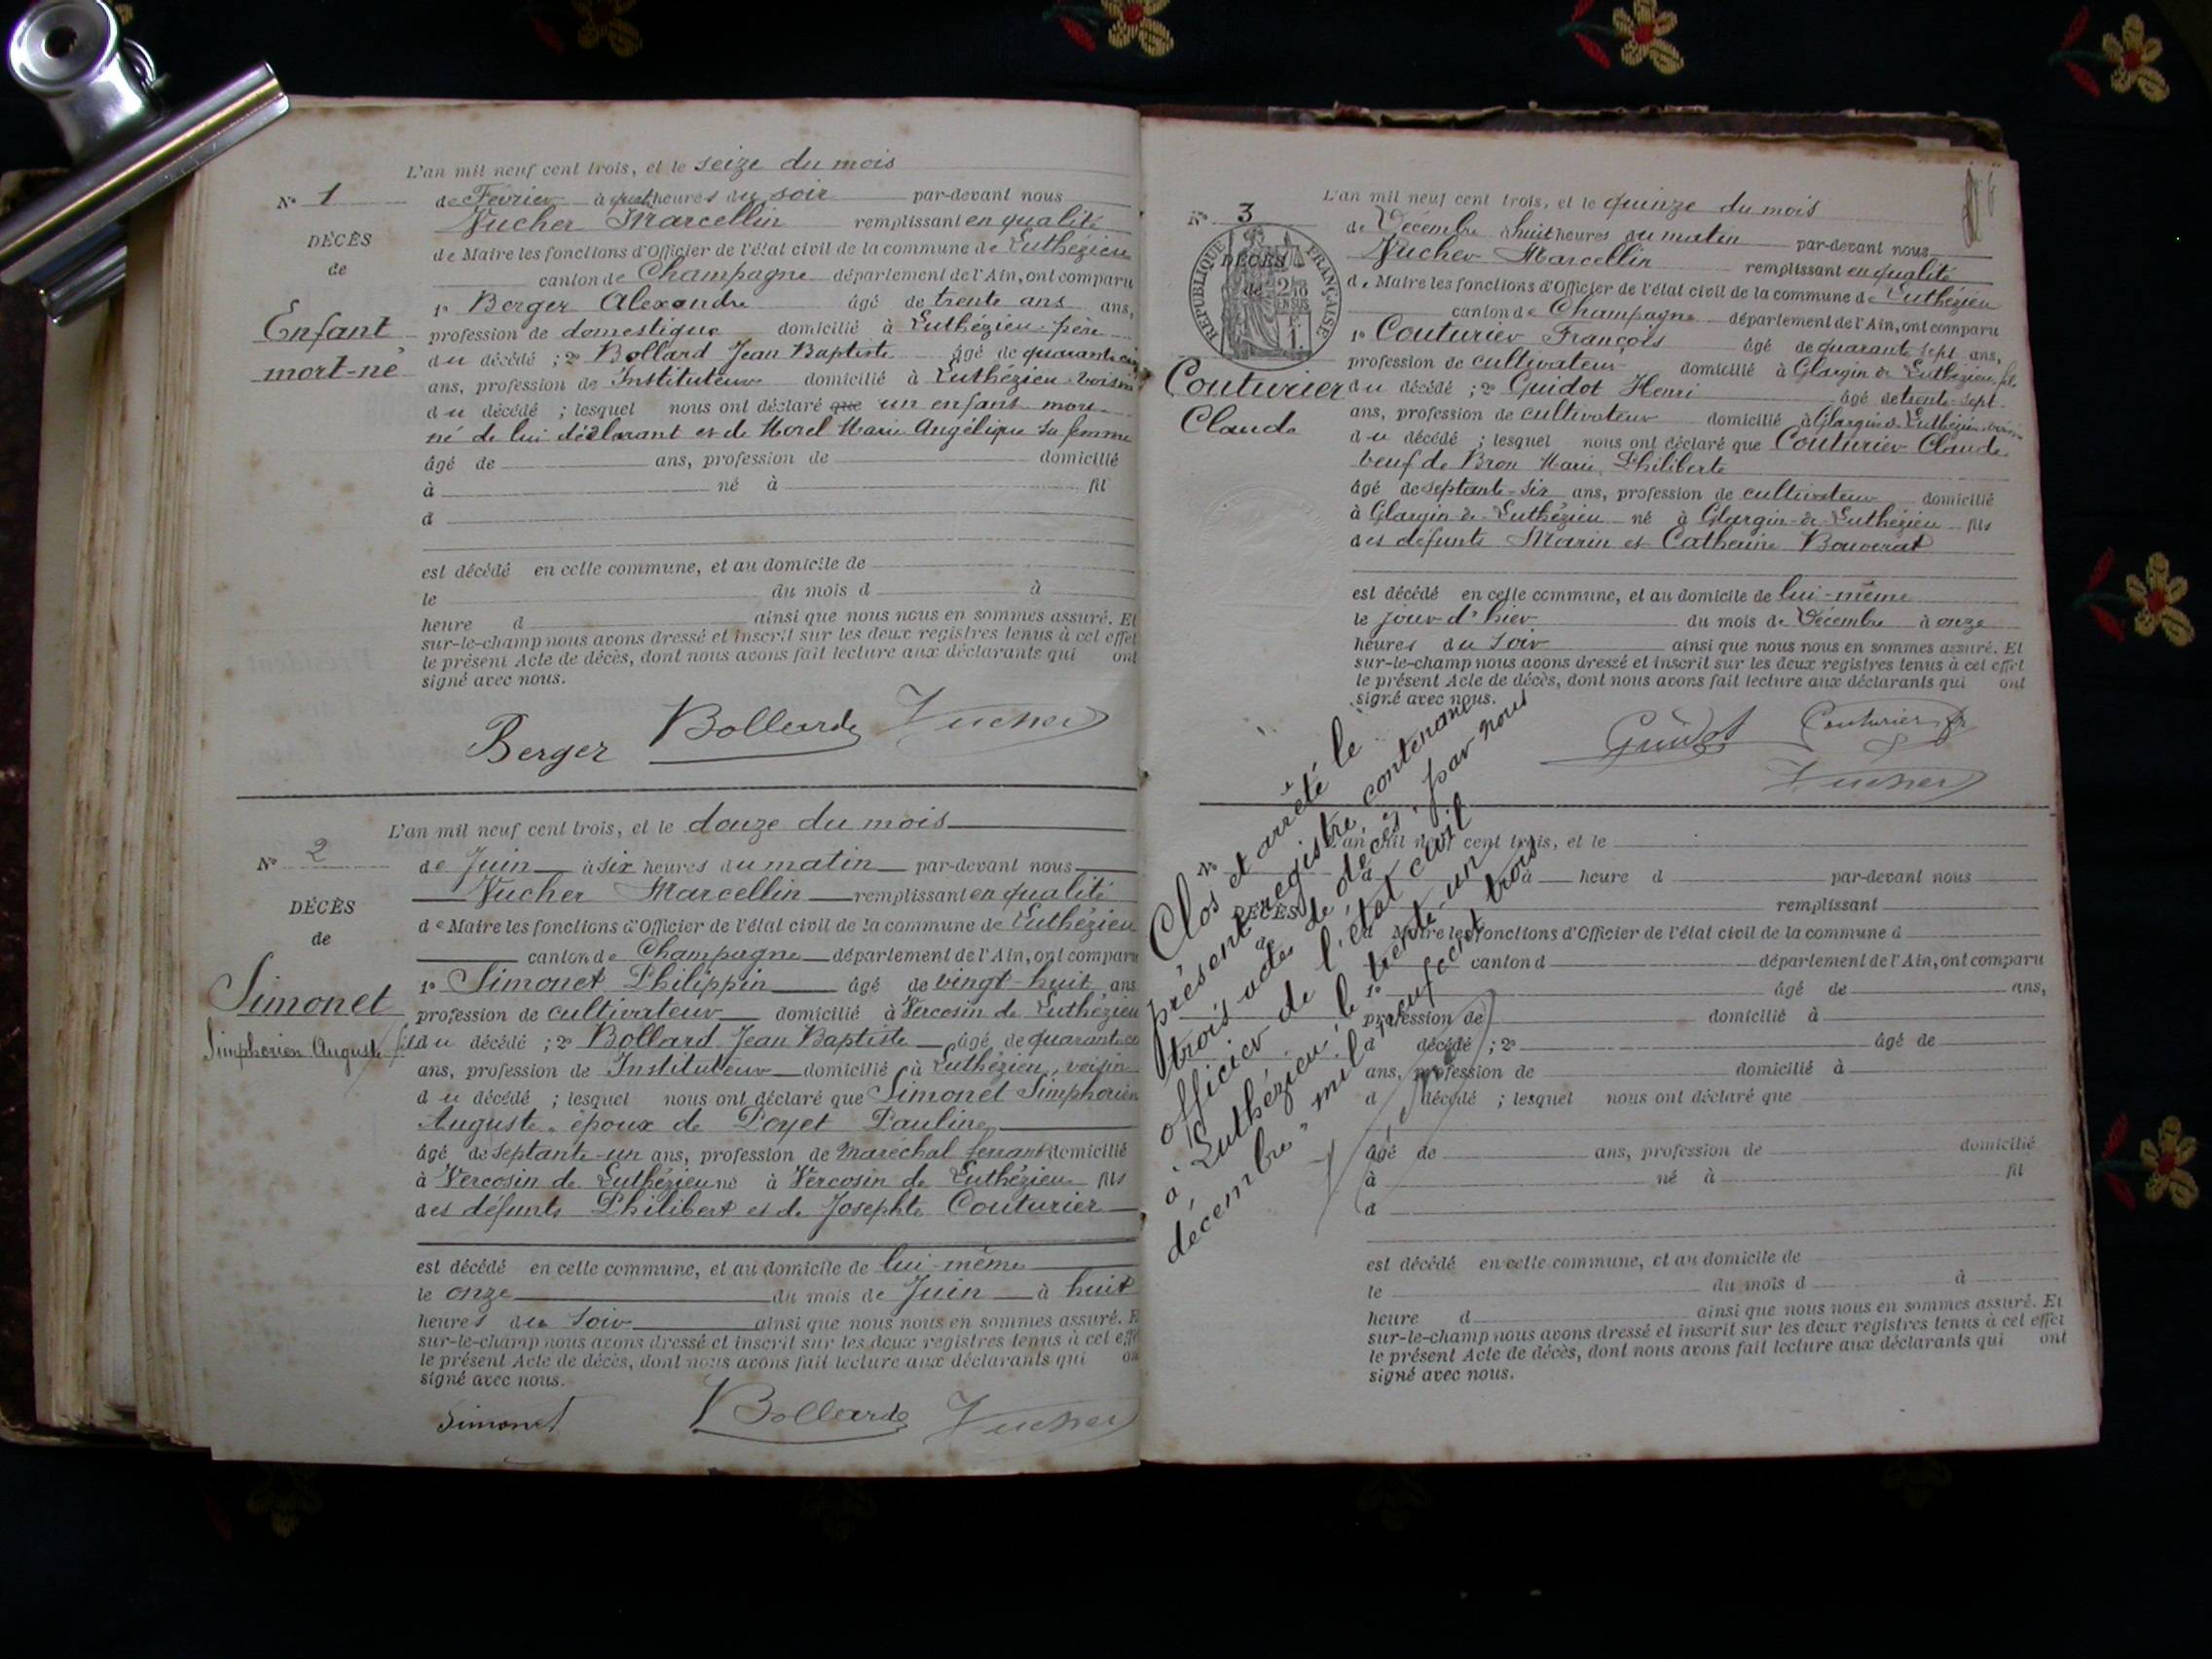 L'an mil neuf cent trois, et le seize du mois
N° 1
de Février à quatre heures du soir par-devant nous
Vucher Marcellin remplissant en qualité
DÉCÈS
de Maire les fonctions d'Officier de l'état civil de la commune de Luthézieu
de
canton de Champagne département de l'Ain, ont comparu
1° Berger Alexandre âgé de trente ans ans,
Enfant
profession de domestique domicilié à Luthézieu père
mort-né
du décédé ; 2° Bollard Jean Baptiste âgé de quarante cinq
ans, profession de Instituteur domicilié à Luthézieu voisin
du décédé ; lesquel nous ont déclaré que un enfant mort-
né de lui déclarant et de Morel Marie Angélique sa femme
âgé de ans, profession de domicilié
à né à fil
d
est décédé en cette commune, et au domicile de
le du mois d à
heure d ainsi que nous nous en sommes assuré. Et
sur-le-champ nous avons dressé et inscrit sur les deux registres tenus à cet effet
le présent Acte de décès, dont nous avons fait lecture aux déclarants qui ont
signé avec nous.
Berger Bollard Vucher
L'an mil neuf cent trois, et le douze du mois
N° 2
de Juin à six heures du matin par-devant nous
Vucher Marcellin remplissant en qualité
DÉCÈS
de Maire les fonctions d'Officier de l'état civil de la commune de Luthézieu
de
canton de Champagne département de l'Ain, ont comparu
Simonet
1° Simonet Philippin âgé de vingt-huit ans
profession de cultivateur domicilié à Vercosin de Luthézieu
Simphorien Auguste
fils du décédé ; 2° Bollard Jean Baptiste âgé de quarante
ans, profession de Instituteur domicilié à Luthézieu, voisin
du décédé ; lesquel nous ont déclaré que Simonet Simphorien
Auguste époux de Poyet Pauline
âgé de septante-un ans, profession de Maréchal ferrant domicilié
à Vercosin de Luthézieu né à Vercosin de Luthézieu fils
des défunts Philibert et de Josephte Couturier
est décédé en cette commune, et au domicile de lui-même
le onze du mois de Juin à huit
heures du soir ainsi que nous nous en sommes assuré. E
sur-le-champ nous avons dressé et inscrit sur les deux registres tenus à cet effe
le présent Acte de décès, dont nous avons fait lecture aux déclarants qui on
signé avec nous.
Simonet Bollard Vucher
L'an mil neuf cent trois, et le quinze du mois
N° 3
de Décembre à huit heures du matin par-devant nous
Vucher Marcellin remplissant en qualité
RÉPUBLIQUE FRANÇAISE
DÉCÈS
de
de Maire les fonctions d'Officier de l'état civil de la commune de Luthézieu
canton de Champagne département de l'Ain, ont comparu
1° Couturier François âgé de quarante sept ans,
profession de cultivateur domicilié à Glargin de Luthézieu, fils
Couturier
du décédé ; 2° Guidot Henri âgé de trente-sept
Claude
ans, profession de cultivateur domicilié à Glargin de Luthézieu voisin
du décédé ; lesquel nous ont déclaré que Couturier Claude
veuf de Bron Marie Philiberte
âgé de septante-six ans, profession de cultivateur domicilié
à Glargin de Luthézieu né à Glargin de Luthézieu fils
des défunts Marin et Catherine Bouverat
est décédé en cette commune, et au domicile de lui-même
le jour d'hier du mois de Décembre à onze
heures du soir ainsi que nous nous en sommes assuré. Et
sur-le-champ nous avons dressé et inscrit sur les deux registres tenus à cet effet
le présent Acte de décès, dont nous avons fait lecture aux déclarants qui ont
signé avec nous.
Guidot Couturier fr
Vucher
Clos et arrêté le
présent registre, contenant
trois actes de décès, par nous
officier de l'état civil
à Luthézieu, le trente-un
décembre mil neuf cent trois
L'an mil neuf cent trois, et le
N°
à heure d par-devant nous
remplissant
DÉCÈS
de
d Maire les fonctions d'Officier de l'état civil de la commune d
canton d département de l'Ain, ont comparu
1° âgé de ans,
profession de domicilié à
d décédé ; 2° âgé de
ans, profession de domicilié à
d décédé ; lesquel nous ont déclaré que
âgé de ans, profession de domicilié
à né à fil
d
est décédé en cette commune, et au domicile de
le du mois d à
heure d ainsi que nous nous en sommes assuré. Et
sur-le-champ nous avons dressé et inscrit sur les deux registres tenus à cet effet
le présent Acte de décès, dont nous avons fait lecture aux déclarants qui ont
signé avec nous.